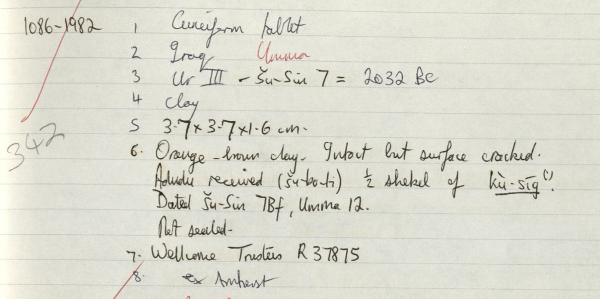 1086-1982 1 Cuneiform tablet
2 Iraq Umma
3 Ur III - Šu-Sin 7 = 2032 BC
4 Clay
5 3.7 x 3.7 x 1.6 cm.
342
6. Orange-brown clay. Intact but surface cracked.
Adudu received (šu-ba-ti) ½ shekel of kù-sig(!).
Dated Šu-Sin 7Bf, Umma 12.
Not sealed.
7. Wellcome Trustees R 37875
8. ex Amherst